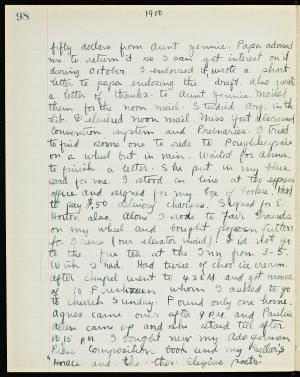 98
1910
fifty dollars from Aunt Jennie. Papa advised
me to return it so I can get interest on it
during October. I endorsed it, wrote a short
letter to papa enclosing the draft. also wrote
a letter of thanks to Aunt Jennie. Mailed
them for the noon mail. I studied Arg. in the
Lib. Delivered noon mail. Miss Yost discussed
Convention system and Primaries. I tried
to find some one to ride to Poughkeepsie
on a wheel but in vain. Waited for Alma
to finish a letter. She put in my blue
card for me. I stood in line at the express
office and signed for my box of books. Had
to pay $.50 delivery charges. Signed for E.
Horton also. Alone I rode to Fair Grounds
on my wheel and bought popcorn fritters
for Irene (our elevator maid). I did not go
to the free tea at the Inn from 3-5.
Wish I had. Had turned hot ice cream
after chapel went to and got names
of 10 Freshmen whom I asked to go
to church Sunday. Found only one home.
Agnes came over after 9 P.M. and Pauline
Allen came up and she staid till after
10:15 P.M. I bought new my Adv. German
Prose Composition book and my "Sellar's
"Horace and the other Elegiac poets"